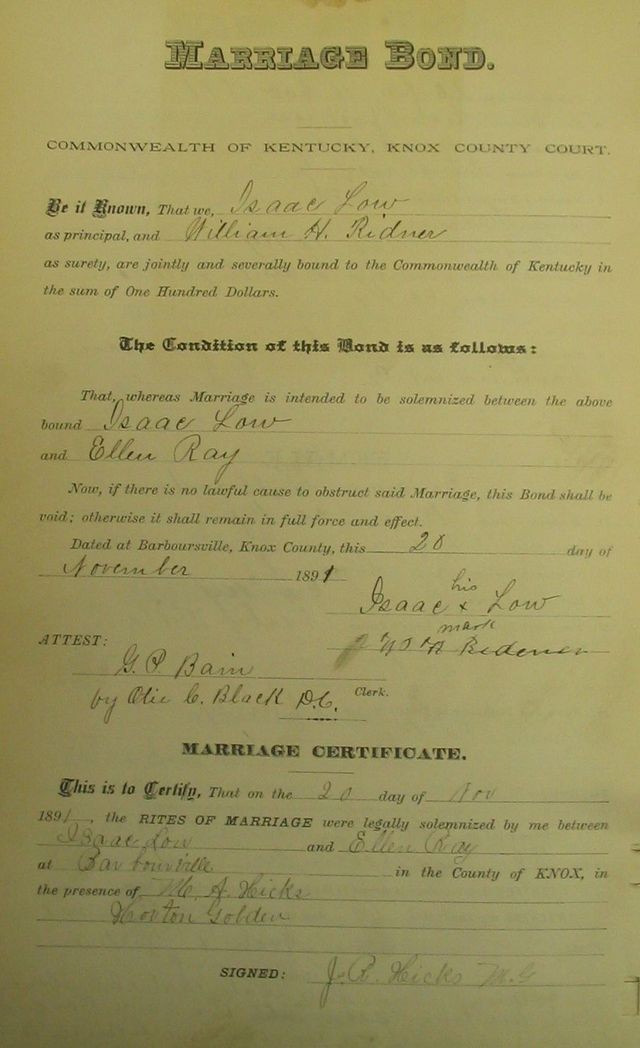 MARRIAGE BOND.
COMMONWEALTH OF KENTUCKY, KNOX COUNTY COURT.
Be it Known, That we, Isaac Low
as principal, and William H. Ridner
as surety, are jointly and severally bound to the Commonwealth of Kentucky in
the sum of One Hundred Dollars.
The Condition of this Bond is as follows:
That, whereas Marriage is intended to be solemnized between the above
bound Isaac Low
and Ellen Ray
Now, if there is no lawful cause to obstruct said Marriage, this Bond shall be
void; otherwise it shall remain in full force and effect.
Dated at Barboursville, Knox County, this 20 day of
November 1891
his
Isaac x Low
mark
ATTEST:
G. P. Bain
by Otie C. Black D.C. Clerk.
MARRIAGE CERTIFICATE.
This is to Certify, That on the 20 day of Nov
1891, the RITES OF MARRIAGE were legally solemnized by me between
Isaac Low and Ellen Ray
at Barbourville in the County of KNOX, in
the presence of M. A. Hicks
Golden
SIGNED: J. R. Hicks M.G